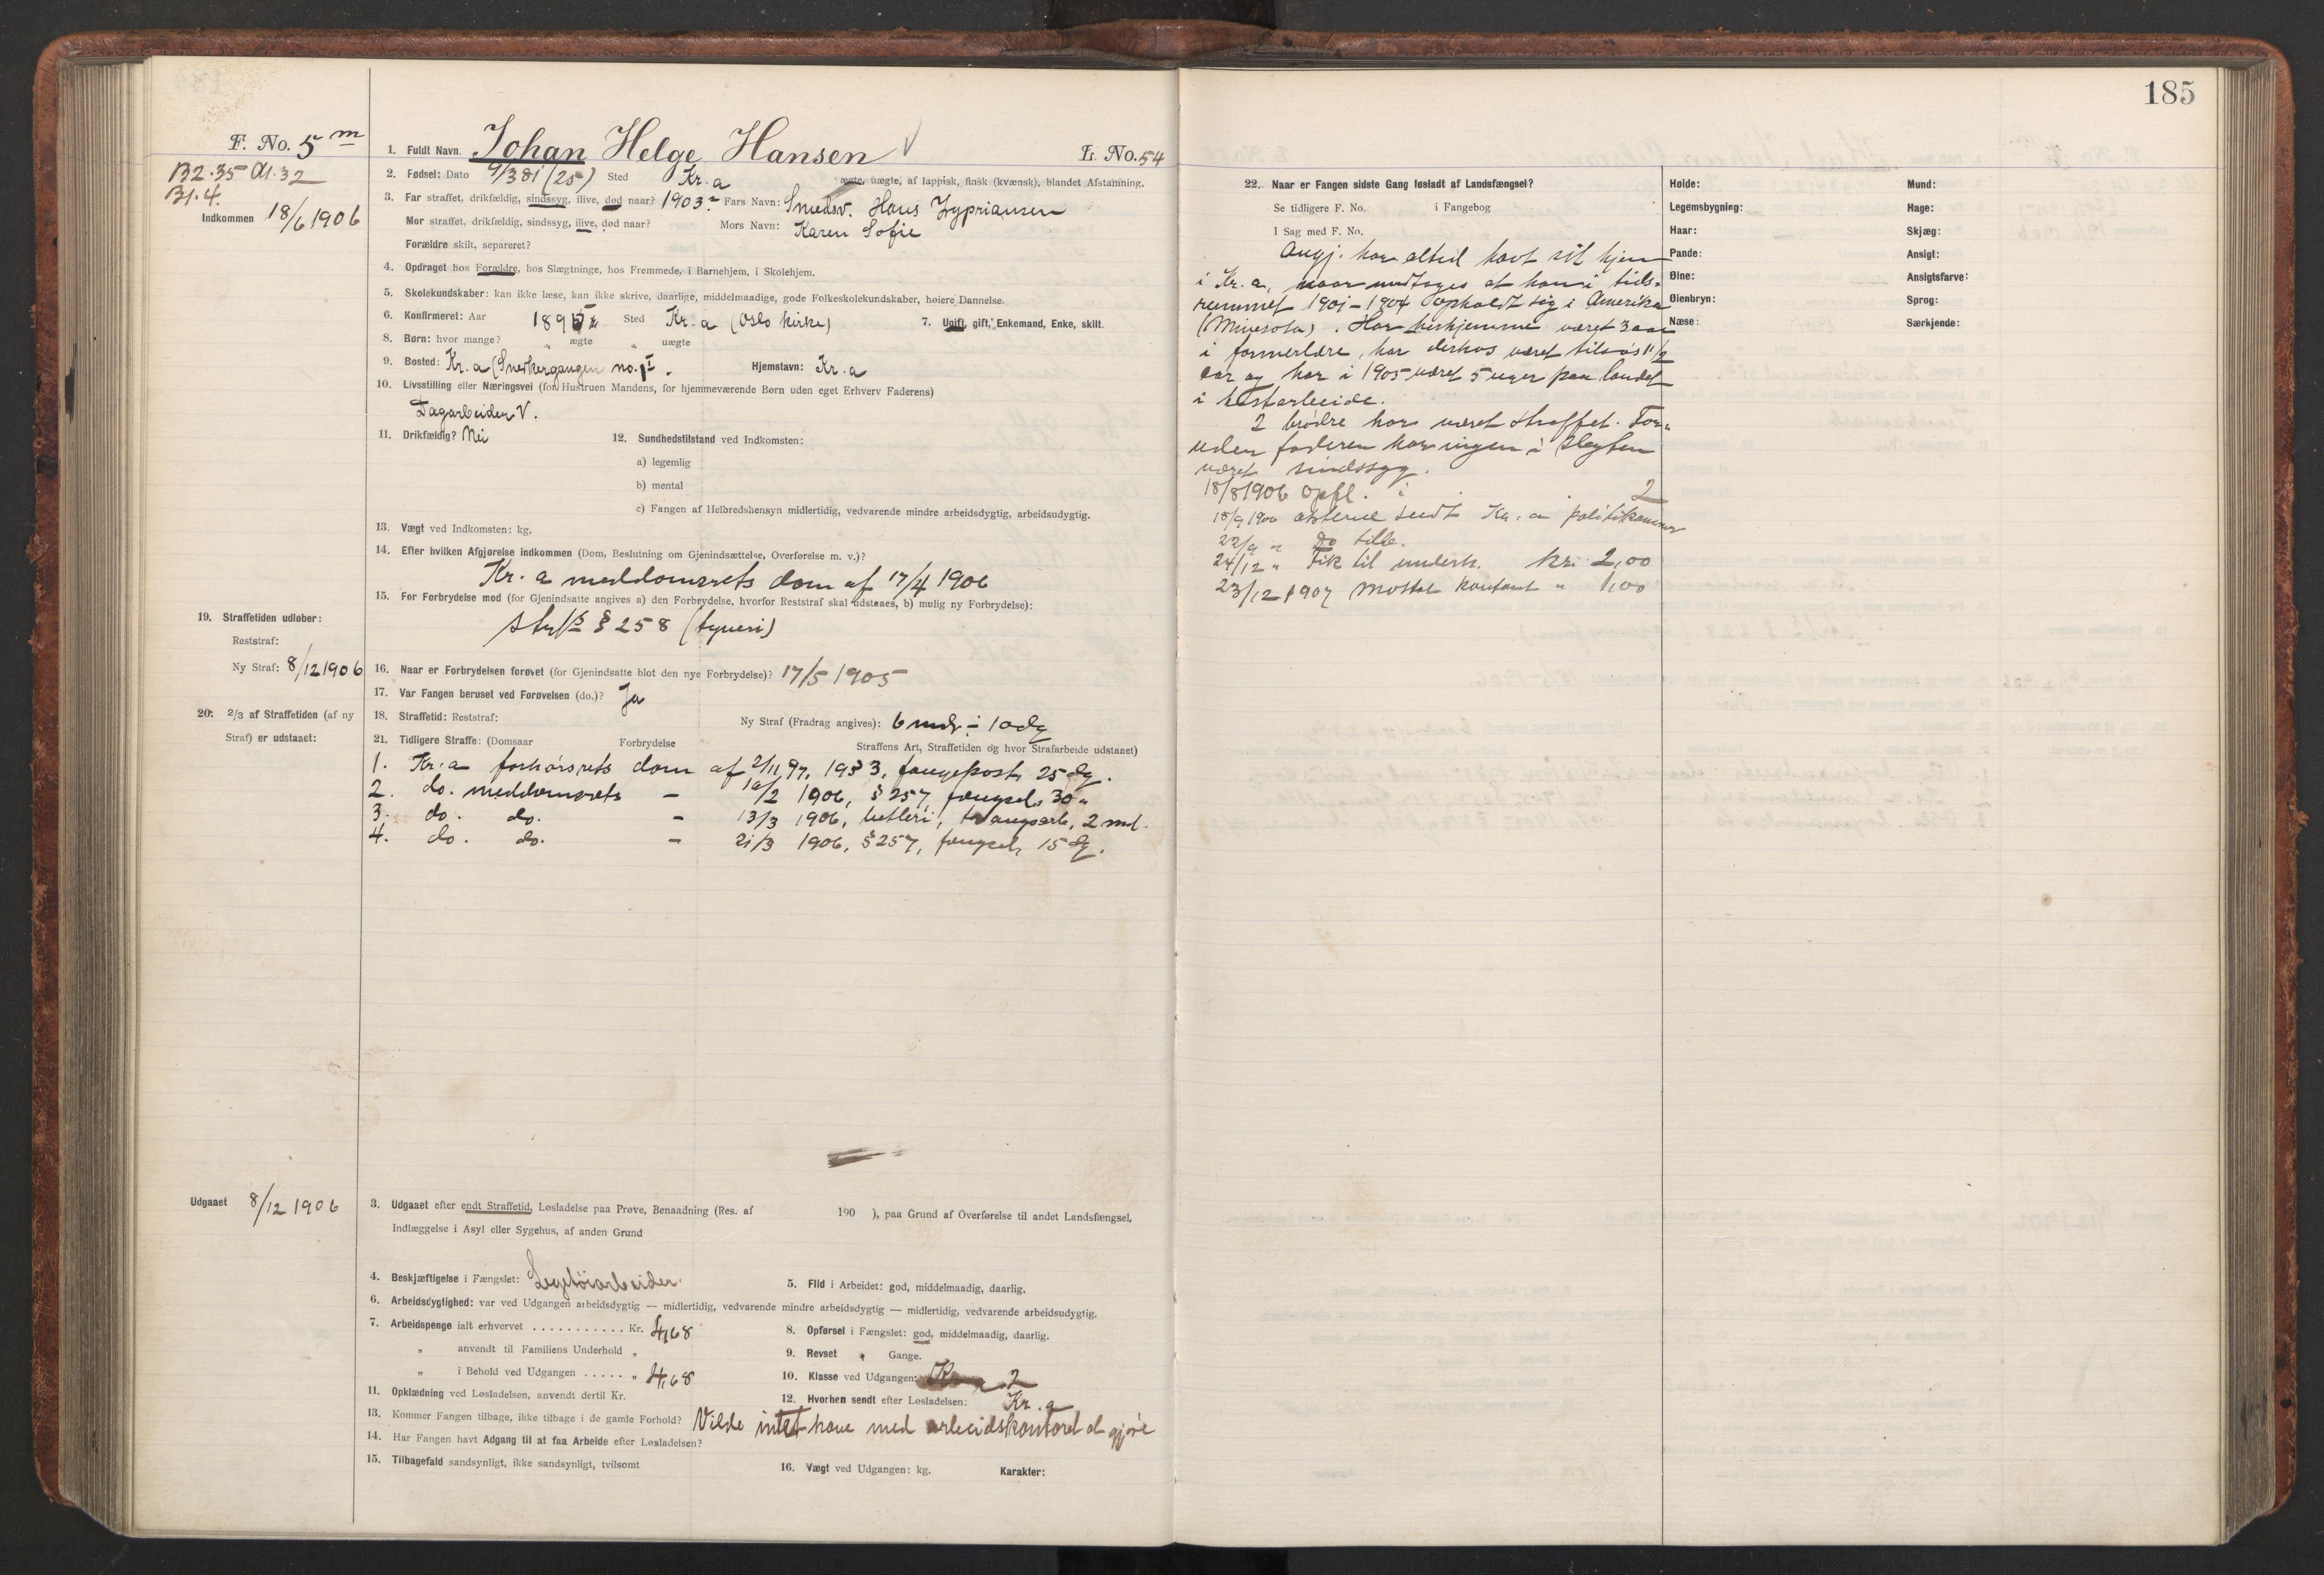 185
F. No. 5 m
B2.35 A1.32
B1.4.
Indkommen 18/6 1906
1. Fuldt Navn. Johan Helge Hansen L. No. 54
2. Fødsel: Dato 9/3 81 (25) Sted Kr.a ægte, uægte, af lappisk, finsk (kvænsk), blandet Afstamning.
3. Far straffet, drikfældig, sindssyg, ilive, død naar? 1903? Fars Navn: Smedsv. Hans Zypriansen
Mor straffet, drikfældig, sindssyg, ilive, død naar? Mors Navn: Karen Sofie
Forældre skilt, separeret?
4. Opdraget hos Forældre, hos Slægtninge, hos Fremmede, i Barnehjem, i Skolehjem.
5. Skolekundskaber: kan ikke læse, kan ikke skrive, daarlige, middelmaadige, gode Folkeskolekundskaber, høiere Dannelse.
6. Konfirmeret: Aar Sted Kr.a (Oslo kirke) 7. Ugift, gift, Enkemand, Enke, skilt.
8. Børn: hvor mange? " ægte " uægte
9. Bosted: Kr.a (Snekkergangen no. 1 I. Hjemstavn: Kr.a
10. Livsstilling eller Næringsvei (for Hustruen Mandens, for hjemmeværende Børn uden eget Erhverv Faderens)
Dagarbeider V.
11. Drikfældig? Nei 12. Sundhedstilstand ved Indkomsten:
a) legemlig
b) mental
c) Fangen af Helbredshensyn midlertidig, vedvarende mindre arbeidsdygtig, arbeidsudygtig.
13. Vægt ved Indkomsten: kg.
14. Efter hvilken Afgjørelse indkommen (Dom, Beslutning om Gjenindsættelse, Overførelse m. v.)?
Kr.a meddomsrets dom af 17/4 1906
15. For Forbrydelse mod (for Gjenindsatte angives a) den Forbrydelse, hvorfor Reststraf skal udstaaes, b) mulig ny Forbrydelse):
§ 258 (tyveri)
19. Straffetiden udløber:
Reststraf:
Ny Straf: 8/12 1906
16. Naar er Forbrydelsen forøvet (for Gjenindsatte blot den nye Forbrydelse)? 17/5 1905
17. Var Fangen beruset ved Forøvelsen (do.)? Ja
20. 2/3 af Straffetiden (af ny
Straf) er udstaaet:
18. Straffetid: Reststraf: Ny Straf (Fradrag angives): 6 mdr ÷ 10 dg
21. Tidligere Straffe: (Domsaar Forbrydelse Straffens Art, Straffetiden og hvor Strafarbeide udstaaet)
1. Kr.a forhørsrets dom af 2/11 97, 19 § 3, fangekost, 25 dg.
2. do. meddomsrets – 10/2 1906, § 257, fængsel, 30 "
3. do. do. – 13/3 1906, betleri, tvangsarb, 2 md.
4. do. do. – 21/3 1906, § 257, fængsel, 15 dg.
Udgaaet 8/12 1906
3. Udgaaet efter endt Straffetid, Løsladelse paa Prøve, Benaadning (Res. af 190 ), paa Grund af Overførelse til andet Landsfængsel,
Indlæggelse i Asyl eller Sygehus, af anden Grund
4. Beskjæftigelse i Fængslet: Legetøiarbeider. 5. Flid i Arbeidet: god, middelmaadig, daarlig.
6. Arbeidsdygtighed: var ved Udgangen arbeidsdygtig — midlertidig, vedvarende mindre arbeidsdygtig — midlertidig, vedvarende arbeidsudygtig.
7. Arbeidspenge ialt erhvervet ........... Kr. 4,68 8. Opførsel i Fængslet: god, middelmaadig, daarlig.
" anvendt til Familiens Underhold " 9. Revset " Gange.
" i Behold ved Udgangen ..... " 4,68 10. Klasse ved Udgangen: 2
11. Opklædning ved Løsladelsen, anvendt dertil Kr. 12. Hvorhen sendt efter Løsladelsen: Kr.a
13. Kommer Fangen tilbage, ikke tilbage i de gamle Forhold? Vilde intet have med arbeidskontoret at gjøre
14. Har Fangen havt Adgang til at faa Arbeide efter Løsladelsen?
15. Tilbagefald sandsynligt, ikke sandsynligt, tvilsomt 16. Vægt ved Udgangen: kg. Karakter:
22. Naar er Fangen sidste Gang løsladt af Landsfængsel?
Se tidligere F. No. i Fangebog
I Sag med F. No.
Angj. har altid havt sit hjem
i Kr.a, naar undtages at han i tids-
rummet 1901–1904 opholdt sig i Amerika
(Minesota). Har herhjemme været 3 aar
i formerlære, har derhos været tilsøs 1 1/2
aar og har i 1905 været 5 uger paa landet
i høstarbeide.
2 brødre har været straffet. For-
uden faderen har ingen i slegten
været sindssyg.
18/8 1906 opfl. i 2
18/9 1906 akterne sendt Kr.a politikammer
22/9 " do tilb.
24/12 " Fik til underh. kr. 2,00
23/12 1907 mottat kontant " 1,00
Høide: Mund:
Legemsbygning: Hage:
Haar: Skjæg:
Pande: Ansigt:
Øine: Ansigtsfarve:
Øienbryn: Sprog:
Næse: Særkjende: